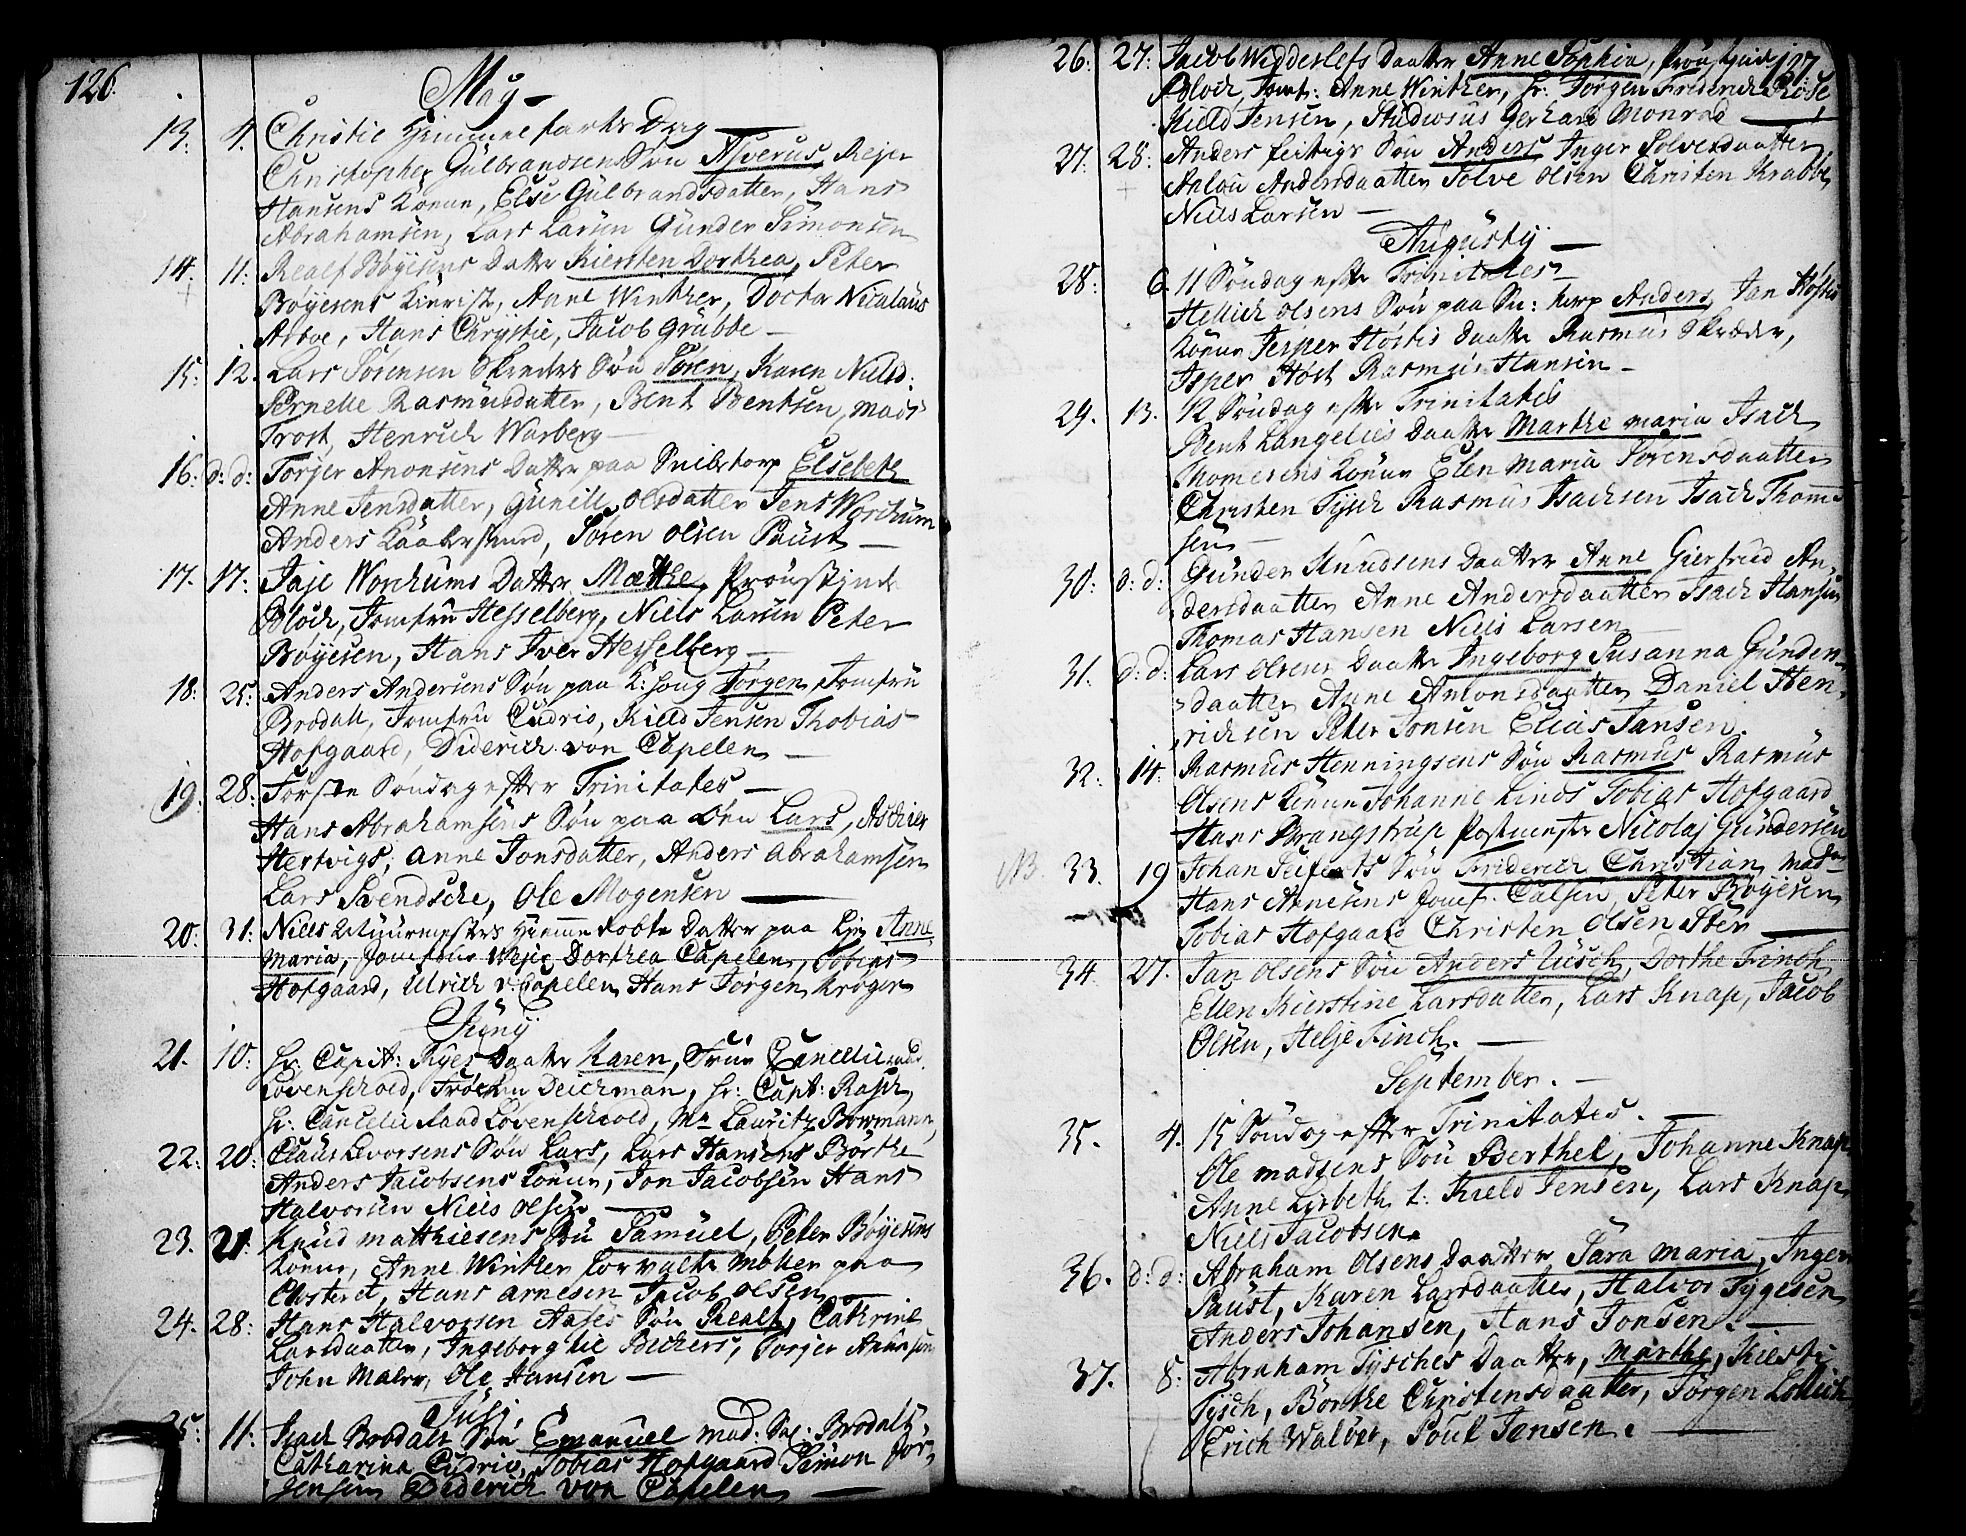 126.
May
13. 4. Christie Himmelfarts Dag
Christopher Gülbrandsens Søn Asverus, Rejer
Hansens Konne, Else Gülbrandsdatter, Hans
Abrahamsen, Lars Larsen Günder Simonsen
14. 11: Realf Bøyesens Datter Kiersten Dorthea, Peter
Boyesens Anne Winther, Doctor Nicolaus
Arboe, Hans Chrystie, Jacob Grubbe
15: 12. Lars Sørensen Søn Søren, Karen Nielsd:
Pernelle Rasmüsdatter, Bent Bentsen, Mads
Trost, Henrich Warberg
16: d: d: Torjer Anonsens Datter paa Snibstorp Elsebeth
Anne Jensdatter, Gunild Olsdatter Jens Worchum
Anders Søren Olsen Paust
17. 17: Jaje Worchums Datter Mætthe,
Bloch, Jomfru Hesselberg, Niels Larsen Peter
Bøyesen, Hans Iver Hesselberg
18: 25: Anders Andersens Søn paa Jørgen, Jomfrü
Brodall, Jomfrü Cudrio, Kield Jensen Thobias
Hofgaard, Diderich von Capelen
19. 28: Første Søndag efter Trinitates
Hans Abrahamsens Søn paa Øen Lars,
Hertvigs, Anne Jonsdatter, Anders Abrahamsen
Lars Svendsche, Ole Mogensen
20. 31: Niels Hiemmedøbte Datter paa Anne
Maria, Jomfrue Dorthea Capelen, Tobias
Hofgaard, Ulrich v: Capelen Hans Jørgen Krøger
Junij
21. 10: Hr. Capit: Ryes Daatter Karen, Frue
Løvenschiold, Frøchen Deichman, Hr: Capt: Rasch,
Hr: Cancelie Raad Løvenschiold, Mr Lauritz Bowmann,
22: 20: Claus Levorsens Søn Lars, Lars Hansens Børthe
Anders Jacobsens Konne, Jon Jacobsen Hans
Halvorsen Niels Olsen
23. 21: Knud Matthiesens Søn Samüel, Peter Bøyesens
Konne, Anne Winther Møller paa
Closteret, Hans Arnesen Jacob Olsen
24. 28: Hans Halvorsen Aases Søn Realf, Cathrine
Larsdaatter, Ingeborg Bechers, Torjer Anonsen
John Maler, Ole Hansen
Julj.
25: 11: Isach Brodals Søn Emanuel Mad: Brodals
Catharina Cudrio, Tobias Hofgaard Simon Jør,
sensen Diderich von Capelen
127.
26: 27: Jacob Widderslefs Daatter Anne Sophia,
Bloch, Jomf: Anne Winther, Hr: Jørgen Friderich Rose
Kield Jensen, Studiosus Gerhard Monrad
27. 28: Anders Søn Anders Inger Solvesdaatter
Anlou Andersdaatter Solve Olsen Christen Krabbe
Niels Larsen
Augusty
28: 6. 11 Søndag efter Trinitates
Hellich Olsens Søn paa Anders, Jan Høsts
Konne Jesper Høstis Daatter Rasmus Skræder,
Jsper Høst Rasmus Hansen
29. 13. 12 Søndag efter Trinitatis
Bent Langelies Daatter Marthe Maria Isach
Thomesens Konne Elen Maria Sørensdaatter
Christen Tysch Rasmus Isachsen Isach Thome
sen
30: d: d: Günder Knudsens Daatter Anne Giertrud An,
dersdaatter Anne Andersdaatter Isach Hansen
Thomas Hansen Niels Larsen
31. d: d: Lars Olsens Daatter Ingeborg Susanna Günders,
daatter Anne Antonsdaatter Daniel Hen,
richsen Peter Jonsen Elias Jansen
32. 14. Rasmus Henningsens Søn Rasmus Rasmüs
Olsens Konne Johanne Linds Tobias Hofgaard
Hans Brangstrup Postmester Nicolaj Gundersen
NB. 33. 19 Johan Seiferts Søn Friderich Christian, Mad
Hans Arnesens Jomf: Peter Bøyesen
Tobias Hofgaard Christen Olsen Sten
34 27. Jan Olsens Søn Anders Dorthe Finch
Ellen Kierstine Larsdatter, Lars Knap, Jacob
Olsen, Helje Finch.
September.
35. 4. 15 Søndag efter Trinitates.
Ole Madsens Søn Berthel, Johanne Knap
Anne Lisbeth L: Kield Jensen, Lars Knap
Niels Jacobsen
36. d: d: Abraham Olsens Daatter Sara Maria, Inger
Paust, Karen Larsdaatter, Halvor Tygesen
Anders Johansen, Hans Jonsen.
37. 8: Abraham Tysches Daatter, Marthe, Kiersti
Tysch, Børthe Christensdaatter, Jørgen
Erich Walder, Poul Jansen.